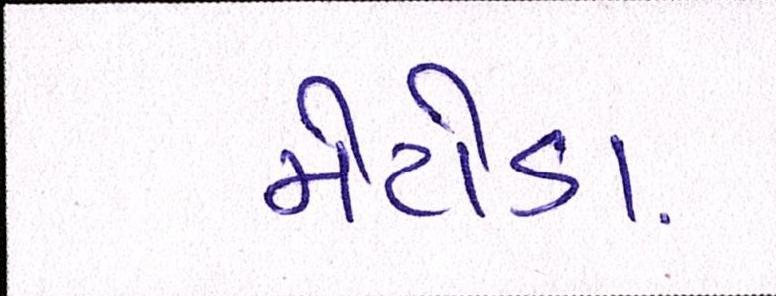 મેટોડા.